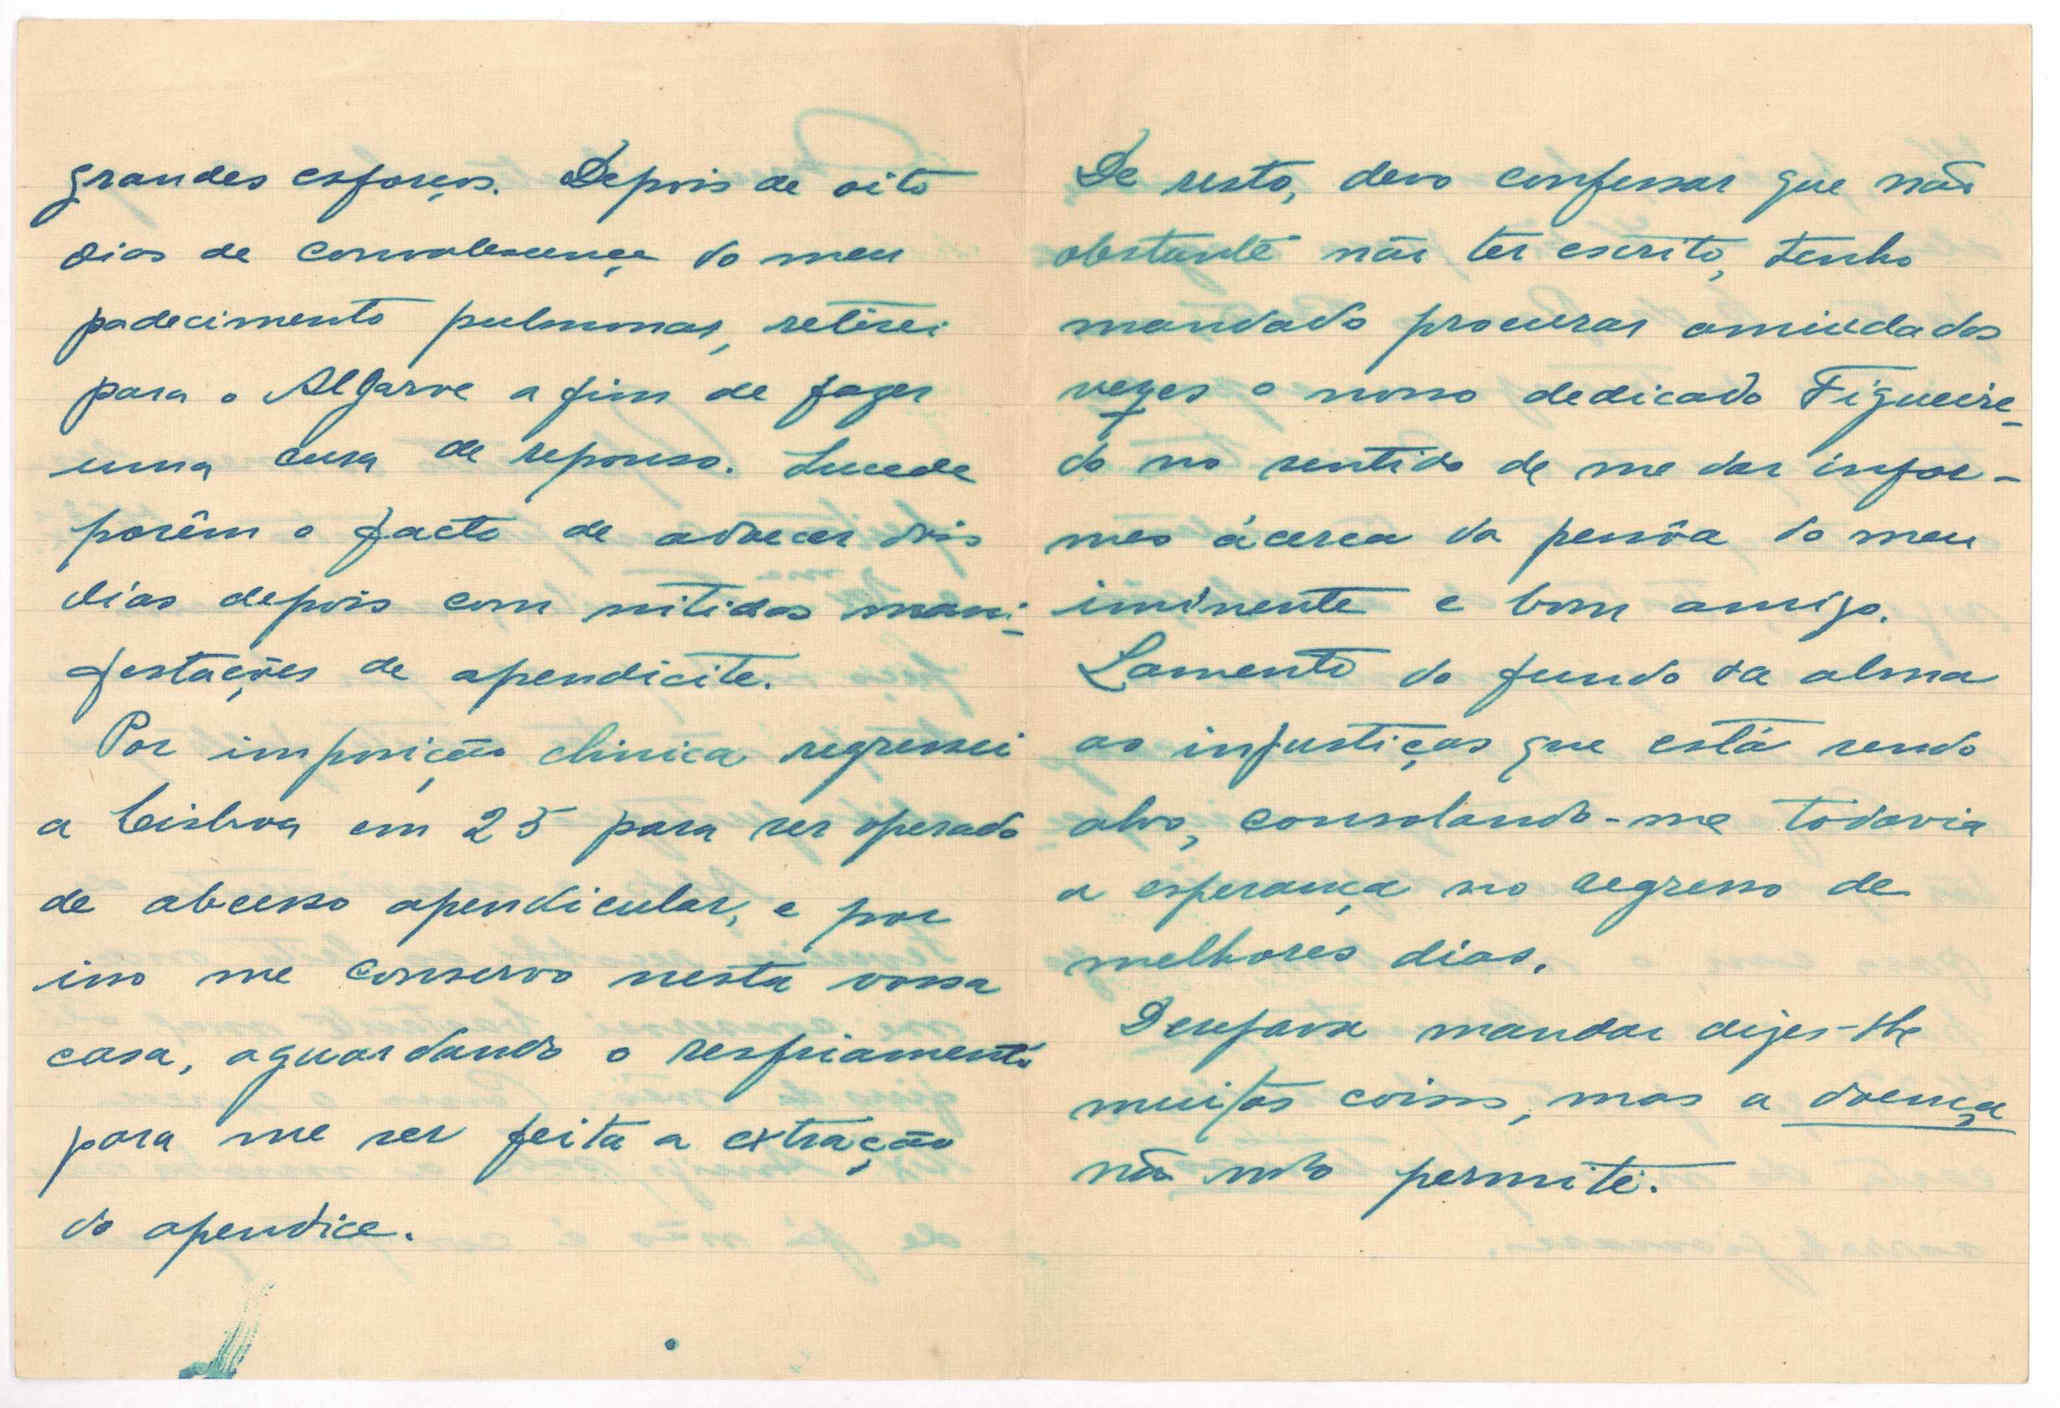 grandes esforços. Depois de oito
dias de convalescença do meu
padecimento pulmonar, retirei
para o Algarve a fim de fazer
uma cura de repouso. Sucede
porêm o facto de adoecer dois
dias depois com nitidas mani-
festações de apendicite.
Por imposição clinica regressei
a Lisboa em 25 para ser operado
de abcesso apendicular, e por
isso me conservo nesta vossa
casa, aguardando o resfriamento
para me ser feita a extração
do apendice.
De resto, devo confessar que não
obstante não ter escrito, tenho
mandado procurar amiudadas
vezes o nosso dedicado Figueire-
do no sentido de me dar infor-
mes ácerca da pessôa do meu
iminente e bom amigo.
Lamento do fundo da alma
as injustiças que está sendo
alvo, consolando-me todavia
a esperança no regresso de
melhores dias.
Desejava mandar dizer-lhe
muitas coisas, mas a doença
não mo permite.